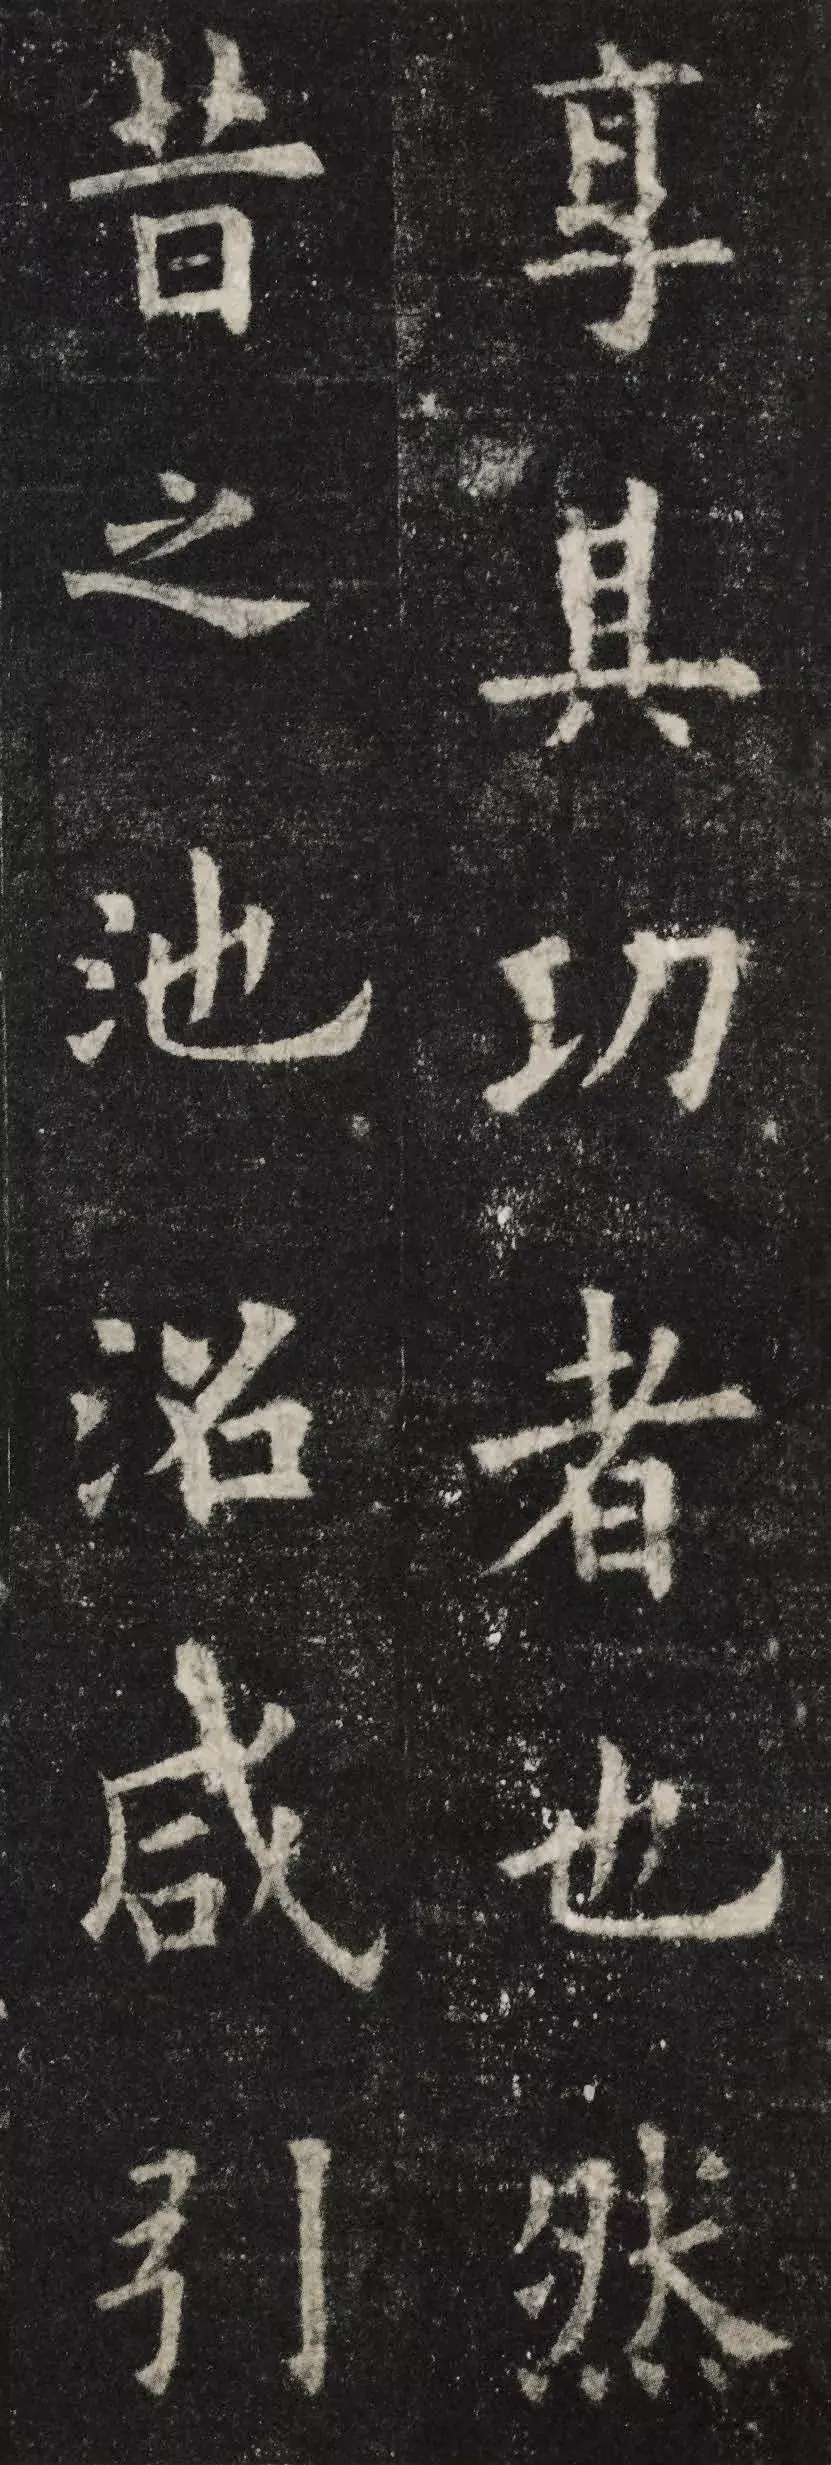 享其功者也然
昔之池沼咸引